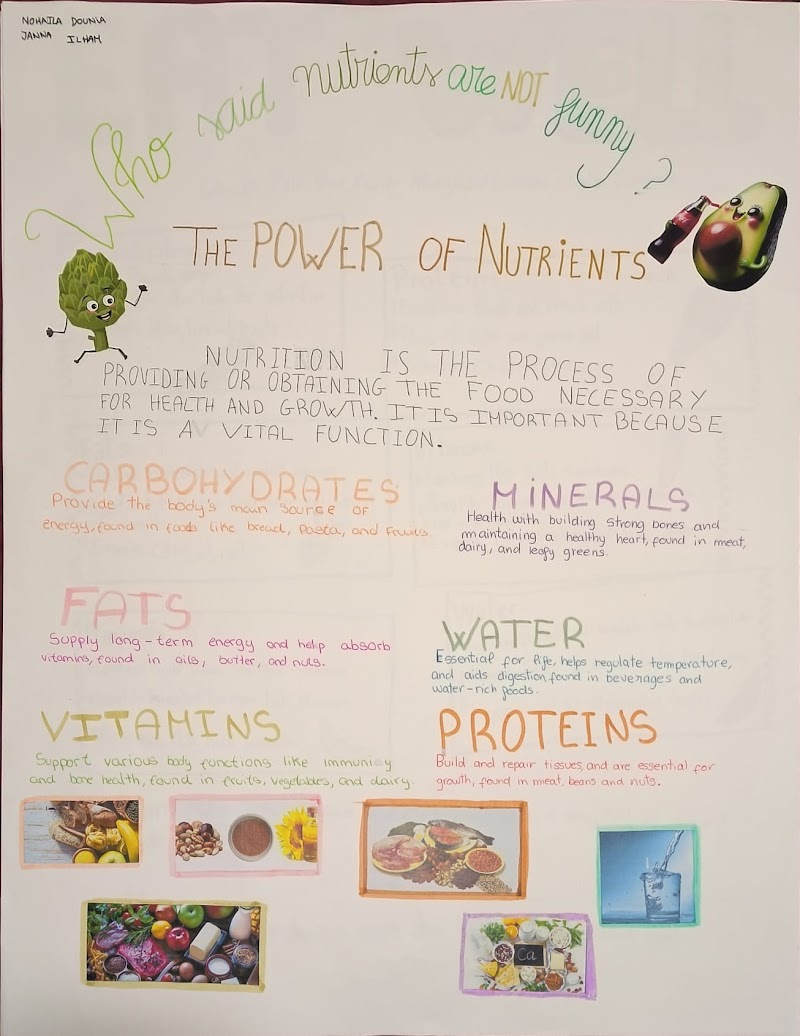 NOHAILA DOUNIA
JANNA ILHAM
Who said nutrients are NOT funny?
THE POWER OF NUTRIENTS
NUTRITION IS THE PROCESS OF
PROVIDING OR OBTAINING THE FOOD NECESSARY
FOR HEALTH AND GROWTH. IT IS IMPORTANT BECAUSE
IT IS A VITAL FUNCTION.
CARBOHYDRATES
Provide the body's main source of
energy, found in foods like bread, Pasta, and fruits.
MINERALS
Health with building strong bones and
maintaining a healthy heart, found in meat,
dairy, and leafy greens.
FATS
Supply long-term energy and help absorb
vitamins, found in oils, butter, and nuts.
WATER
Essential for life, helps regulate temperature,
and aids digestion, found in beverages and
water-rich foods.
VITAMINS
Support various body functions like immunity
and bone health, found in fruits, vegetables, and dairy.
PROTEINS
Build and repair tissues, and are essential for
growth, found in meat, beans and nuts.
Ca